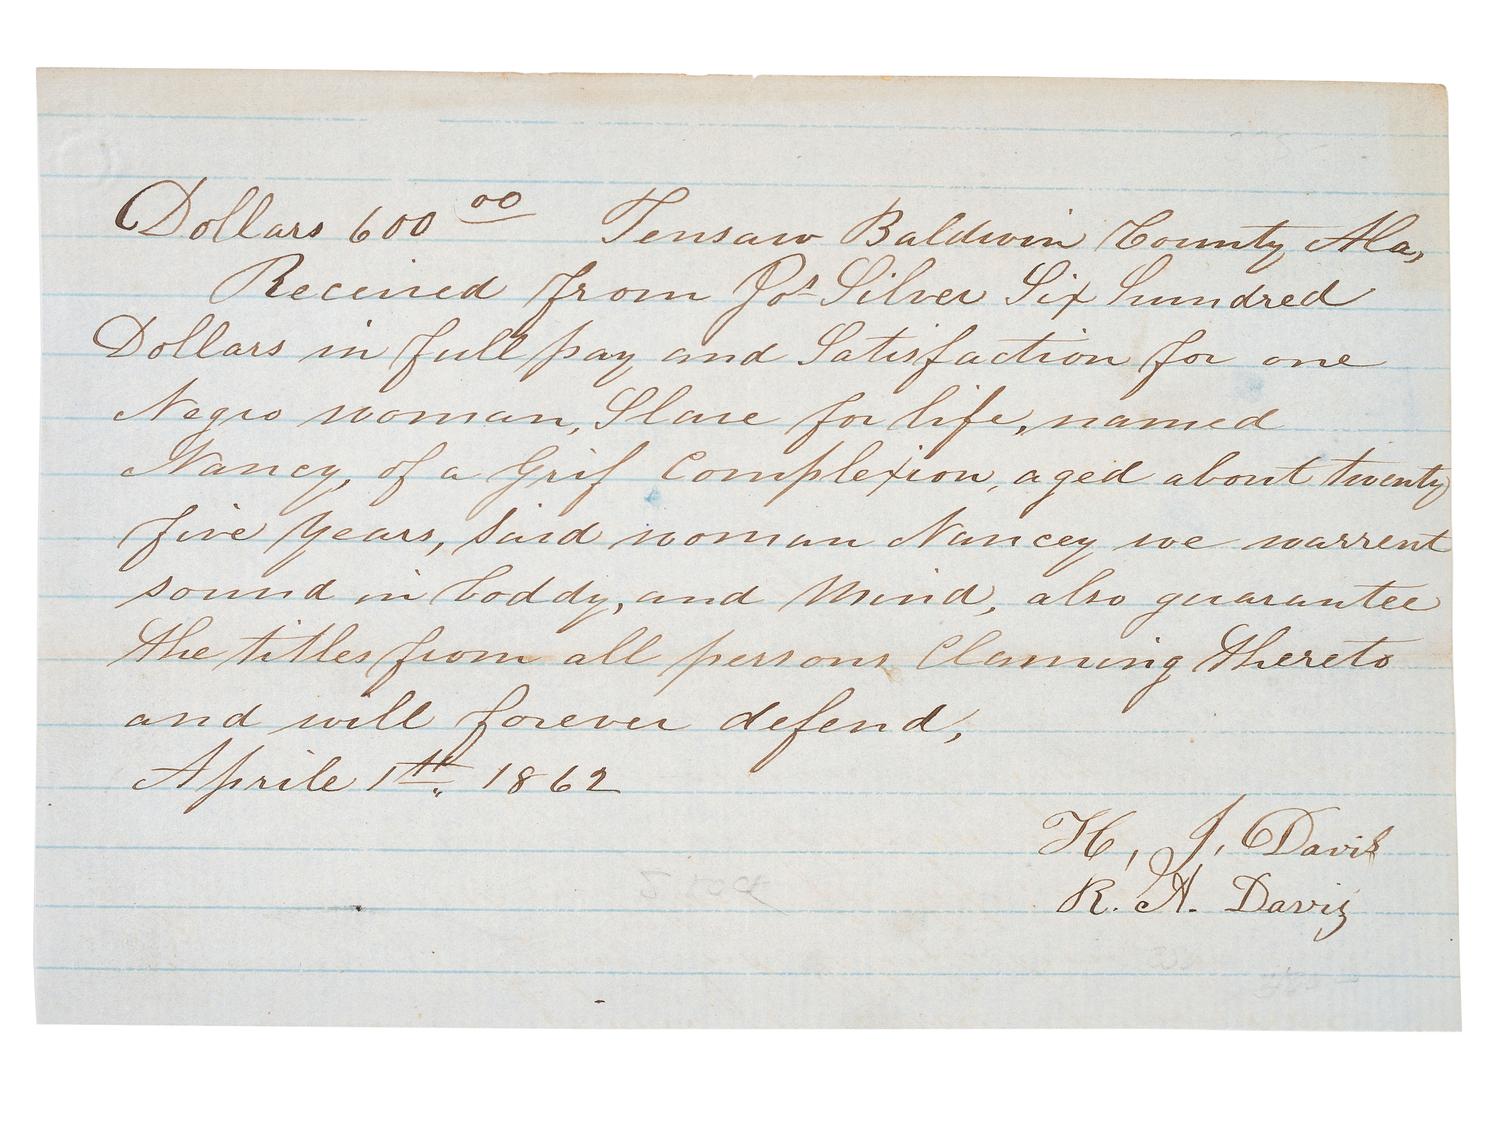 Dollars 600 00 Tensaw Baldwin County Ala,
Received from Jos Silver Six hundred
Dollars in full pay and Satisfaction for one
Negro woman, Slave for life, named
Nancy, of a Grif Complexion, aged about twenty
five years, Said woman Nancey we warrent
sound in boddy, and Mind, also guarantee
the titles from all persons Claming thereto
and will forever defend,
Aprile 1th, 1862
H, J, Davis
R. A. Davis